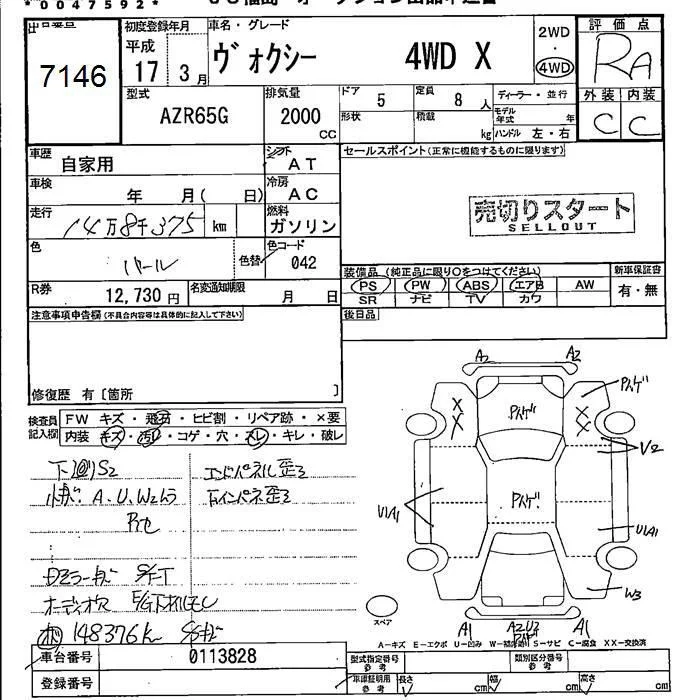 * 0 0 4 7 5 9 2 *
7146
初度登録年月
平成
17 3月
車名・グレード
ヴォクシー 4WD X
2WD
・
4WD
評価点
RA
型式
AZR65G
排気量
2000
CC
ドア 5
定員 8人
形状
積載 kg
ディーラー・並行
モデル年式 年
ハンドル 左・右
外装 内装
C C
車歴
自家用
シフト
AT
セールスポイント(正常に機能するものに限ります)
車検
年 月( 日)
冷房
AC
走行
14万8千375 km
燃料
ガソリン
売切りスタート
SELLOUT
色
パール
色替
色コード
042
装備品(純正品に限り○をつけてください)
新車保証書
PS PW ABS エアB AW
有・無
SR ナビ TV カワ
R券
12,730円
名変通知期限
月 日
後日品
注意事項申告欄(不具合内容等は具体的に記入して下さい)
修復歴 有〔箇所 〕
検査員記入欄
FW キズ・飛石・ヒビ割・リペア跡・×要
内装 キズ・汚れ・コゲ・穴・スレ・キレ・破レ
下回りS2
エンドパネル歪ミ
A.U.W2
148376K
A2 A2
V2
U1A1
U1A1
W3
スペア
A1 A2U3 A1
A-キズ E-エクボ U-凹み W-補修跡 S-サビ C-腐食 XX-交換済
車台番号
0113828
型式指定番号 参考
類別区分番号 参考
登録番号
車庫証明用 参考
長さ cm
幅 cm
高さ cm